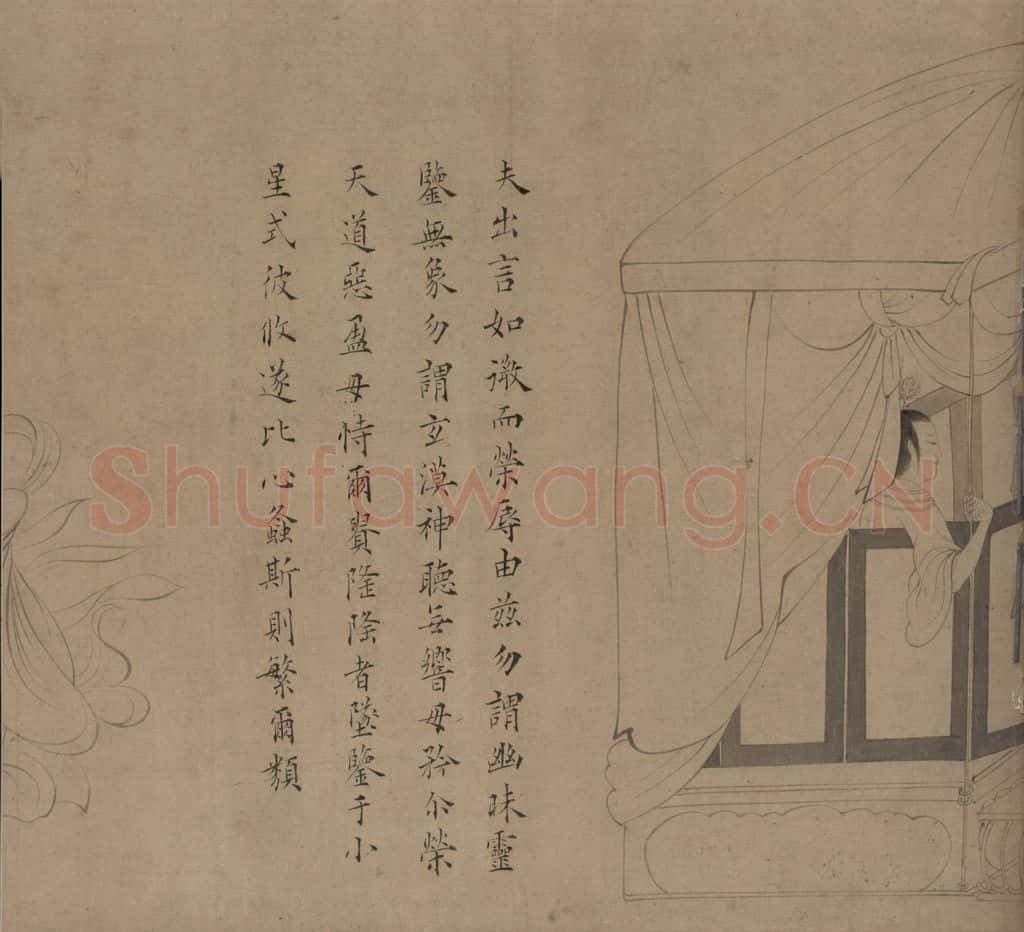 夫出言如微而榮辱由茲勿謂幽昧靈
鑒無象勿謂玄漠神聽無響毋矜尒榮
天道惡盈毋恃爾貴隆隆者墜鑒于小
星式彼攸遂比心螽斯則繁爾類
Shufawang.CN